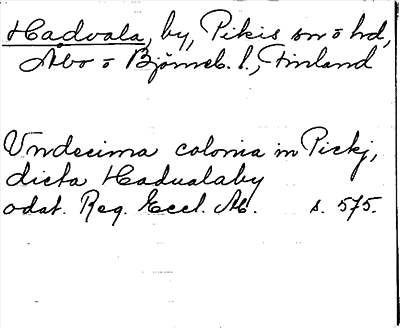 Hadvala, by, Pikis sn o hd,
Åbo o Björneb. l., Finland
Vndecima colonia in Pickj,
dicta Hadualaby
odat. Reg. Eccl. Ab. s. 575.